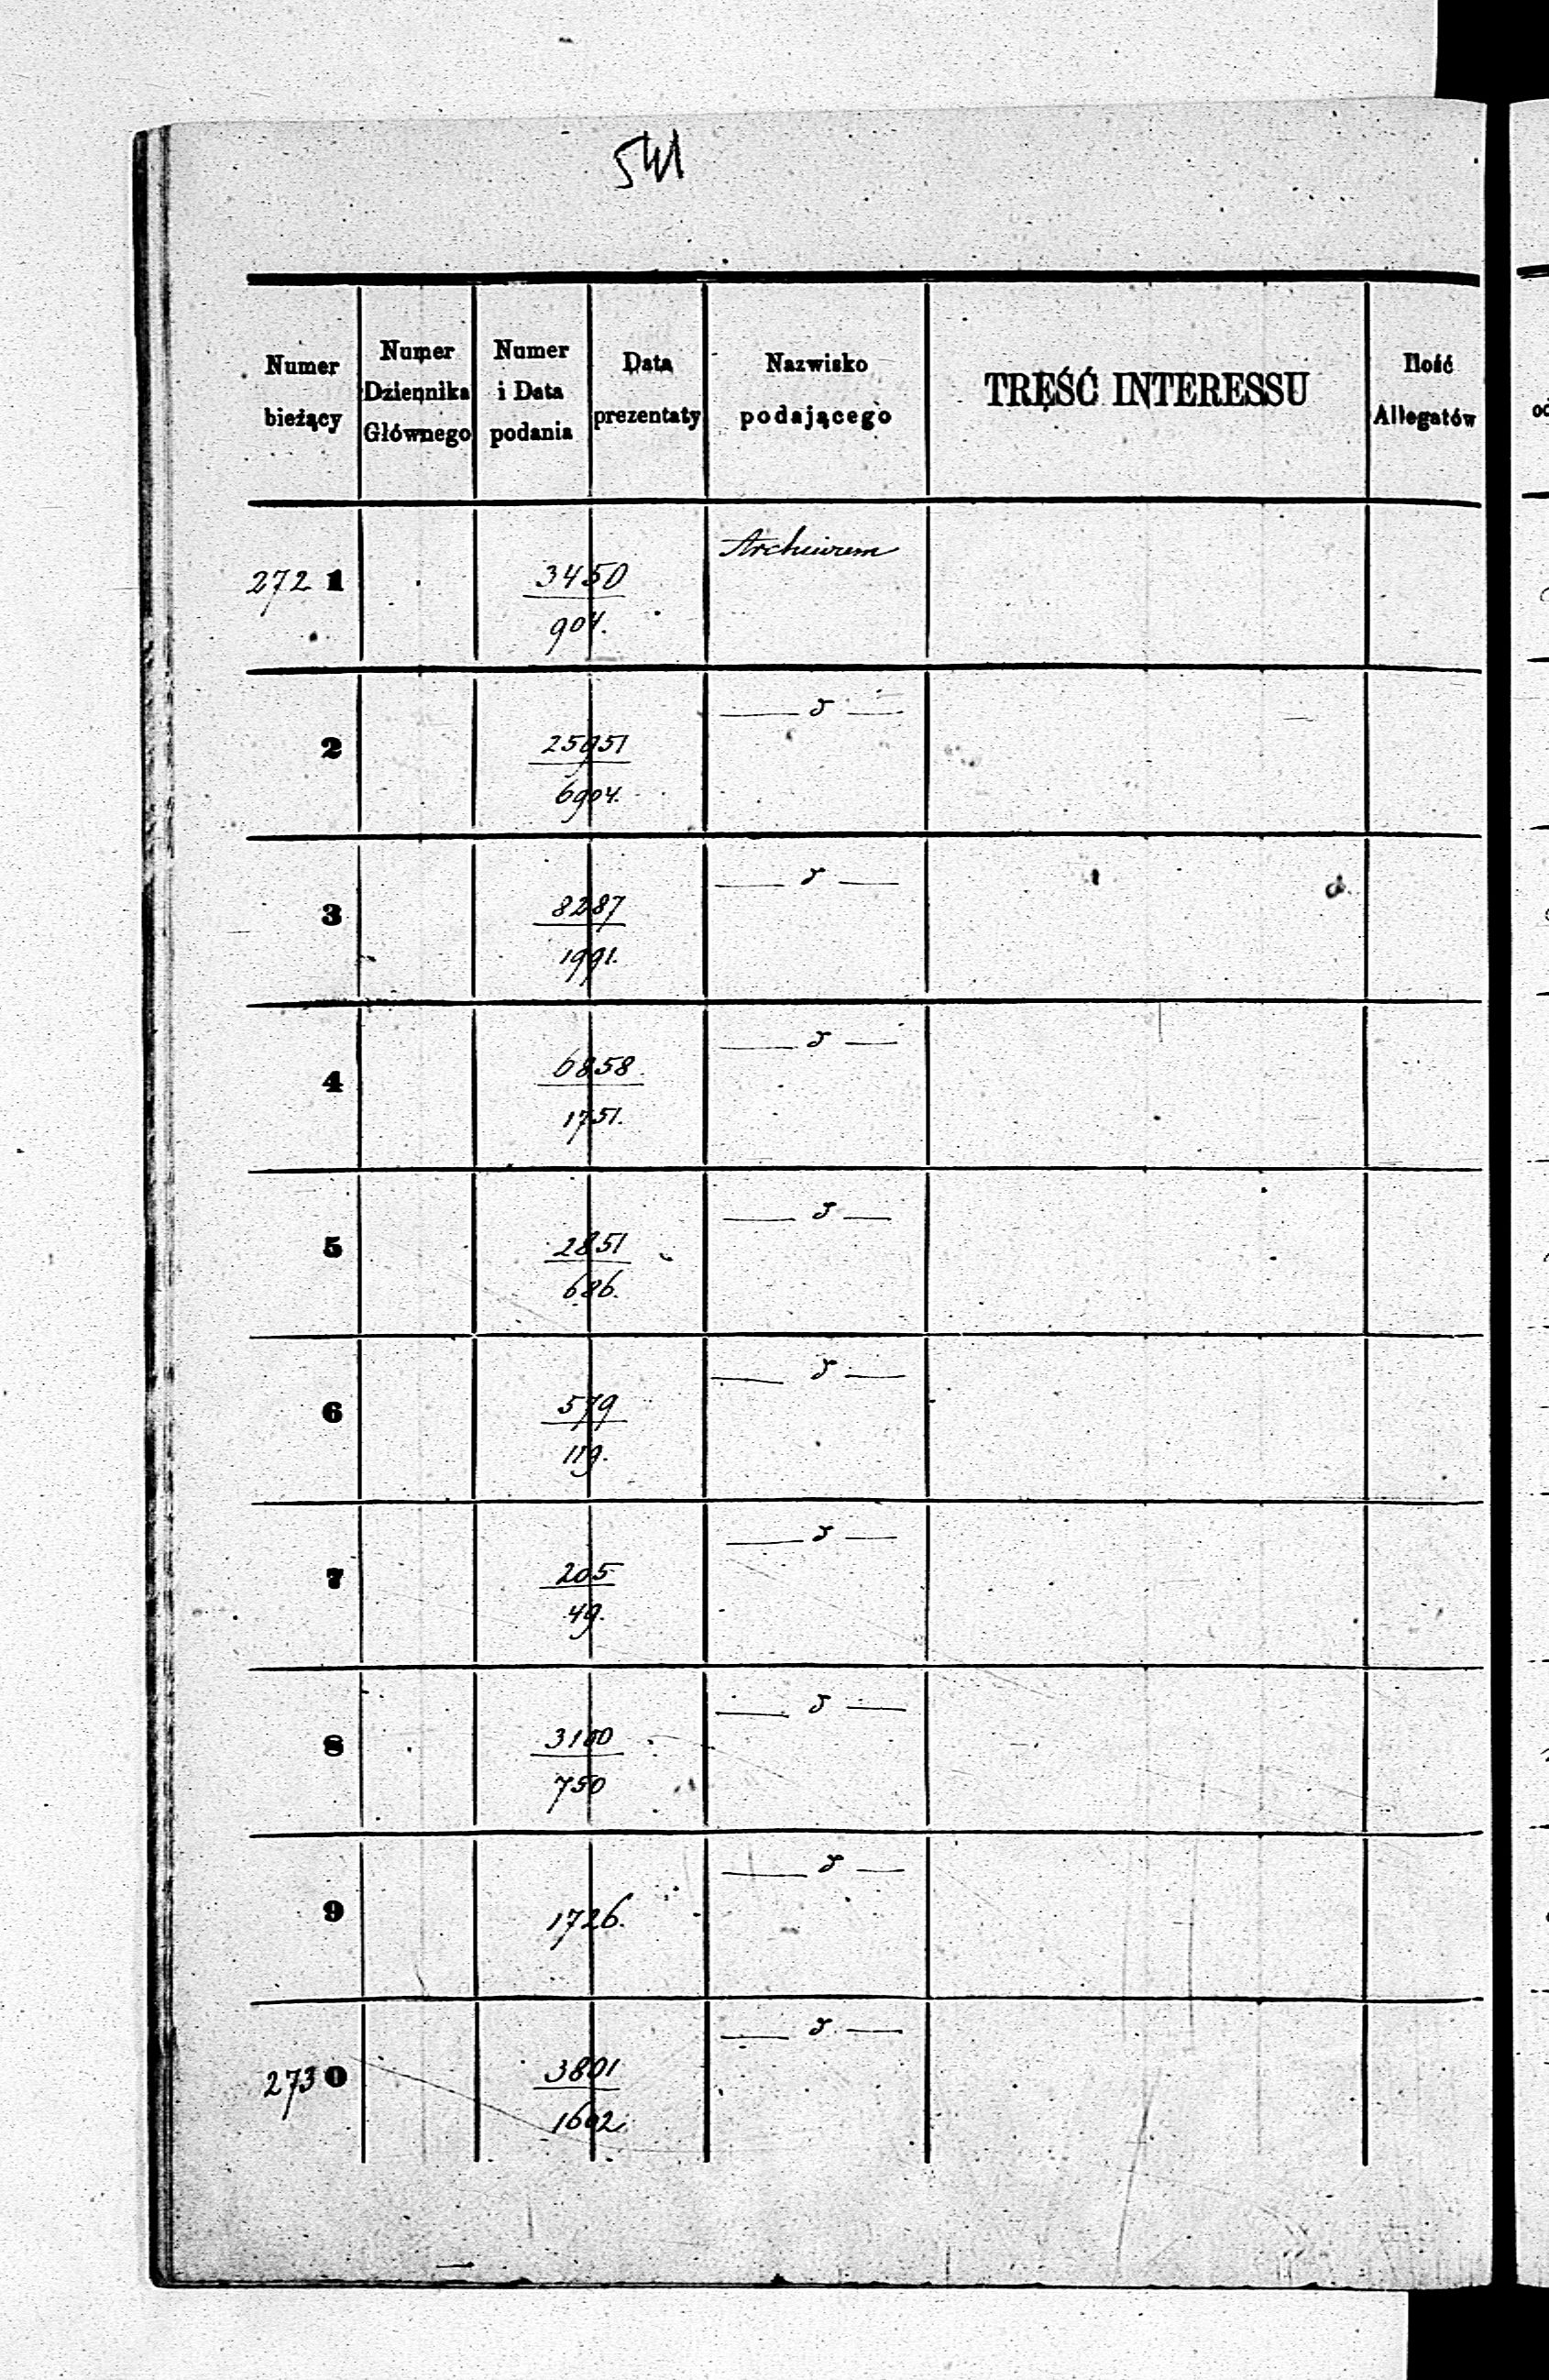 541
Numer bieżący
Numer Dziennika Głównego
Numer i Data podania
Data prezentaty
Nazwisko podającego
TREŚĆ INTERESSU
Ilość Allegatów
2721
3450
904.
Archiwum
2
25951
6904.
3
8287
1991.
4
6858.
1751.
5
2851
686.
6
579
119.
7
205
49.
8
3100
750
9
1726.
2730
3801
1602.